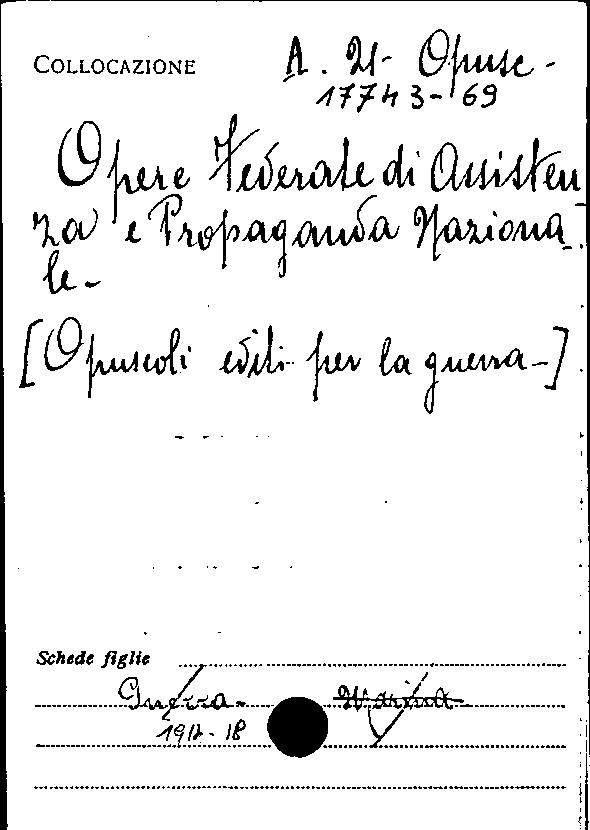 COLLOCAZIONE
A. 21- Opusc -
17743-69
Opere Federate di Assisten
za e Propaganda Naziona
le-
[Opuscoli editi per la guerra-]
Schede figlie
Guerra- Marina